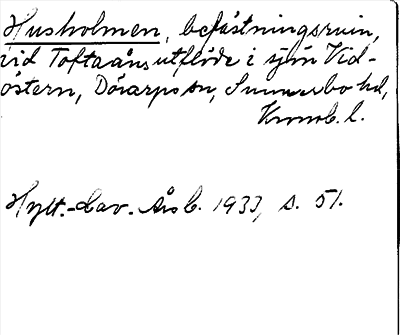 Husholmen, befästningsruin,
vid Toftaåns utflöde i sjön Vid-
östern, Dörarps sn, Sunnerbo hd,
Kronob. l.
Hylt.-Cav. Årsb. 1937, s. 51.